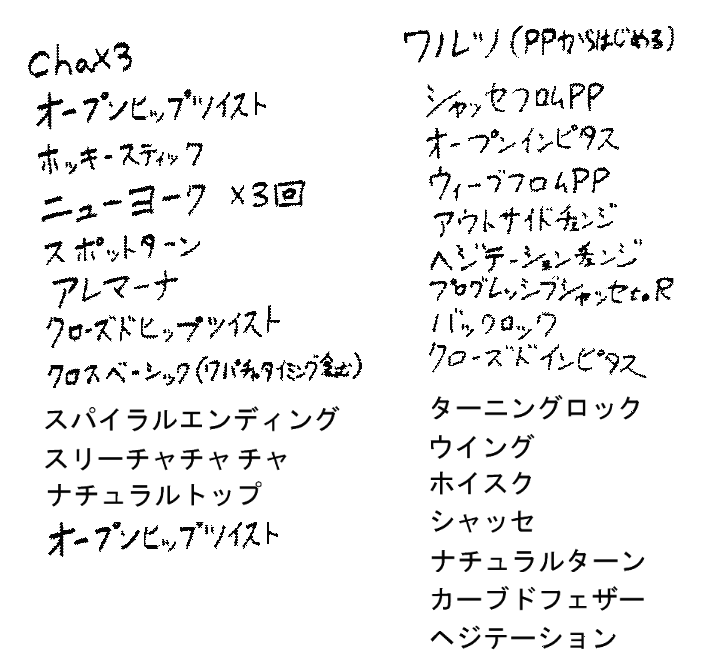 Cha×3
オープンヒップツイスト
ホッキースティック
ニューヨーク ×3回
スポットターン
アレマーナ
クローズドヒップツイスト
クロスベーシック(ワパチャタイミング含む)
スパイラルエンディング
スリーチャチャ チャ
ナチュラルトップ
オープンヒップツイスト
ワルツ(PPからはじめる)
シャッセフロムPP
オープンインピタス
ウィーブフロムPP
アウトサイドチェンジ
ヘジテーションチェンジ
プログレッシブシャッセto R
バックロック
クローズドインピタス
ターニングロック
ウイング
ホイスク
シャッセ
ナチュラルターン
カーブドフェザー
ヘジテーション